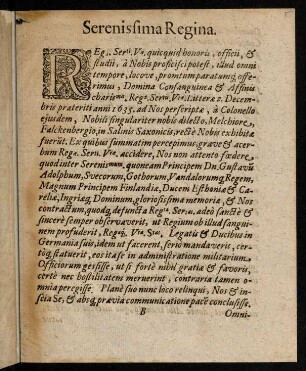 Serenissima Regina.
REg. Serti. Væ. quicquid honoris, officii, &
studii, à Nobis proficisci potest, illud omni
tempore, locove, promtum paratumq; offe-
rimus, Domina Consanguinea & Affinis
charissima. Regæ. Seræ. Væ. Litteræ 2. Decem-
bris præteriti anni 1635. ad Nos perscriptæ, à Colonello
ejusdem, Nobili singulariter nobis dilecto, Melchiore,
Falckenbergio, in Salinis Saxonicis, rectè Nobis exhibitæ
fuerût. Ex quibus summatim percepimus, grave & acer-
bum Regæ. Serti. Væ. accidere, Nos non attento fædere,
quod inter Serenissimum, quoneam Principem Dn. Gustavū
Adolphum, Svecorum, Gothorum, Vandalorumq; Regem,
Magnum Principem Finlandiæ, Ducem Esthoniæ & Ca-
reliæ, Ingriæq; Dominum, gloriosissimæ memoriæ, & Nos
contractum, quodq; defuncta Regia. Ser. adeò sanctè &
sincerè semper observaverit, ut Regium ob illud sangui-
nem profuderit, Regæq; Væ. Ser. Legatis & Ducibus in
Germania suis, idem ut facerent, seriò mandaverit, cer-
tòq; statuerit, eos ita se in administratione militarium
Officiorum gessisse, ut si fortè nihil gratiæ & favoris,
certè nec hostilitatem meruerint, contraria tamen o-
mnia peregisse. Planè suo nunc loco relinqui, Nos & in-
sciâ Se. & absq; prævia communicatione pacē conclusisse.
B
Omni-